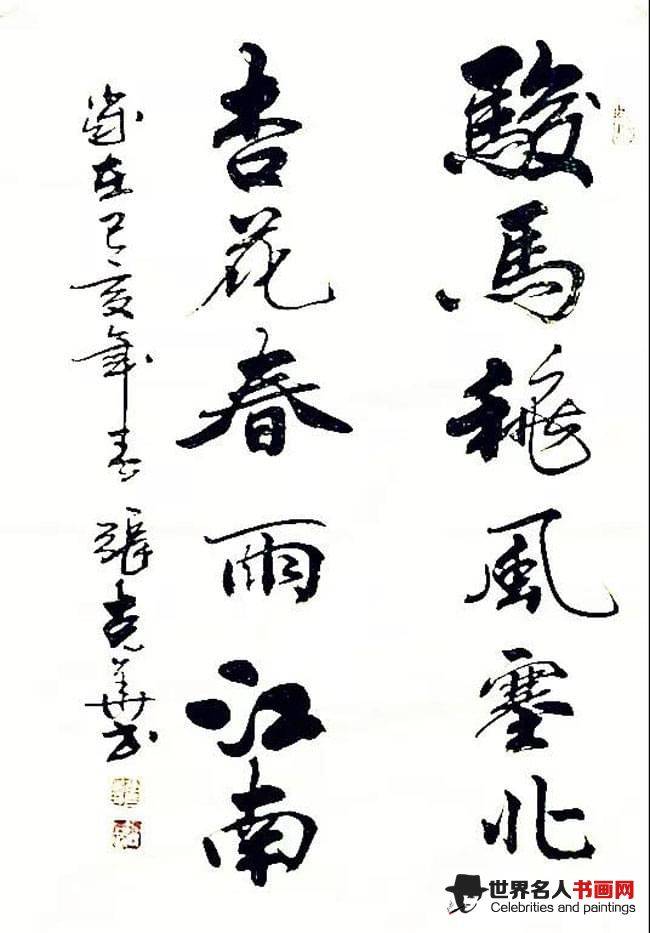 駿馬穐風塞北
杏花春雨江南
歲在己亥年春 張克華书
世界名人书画网
Celebrities and paintings